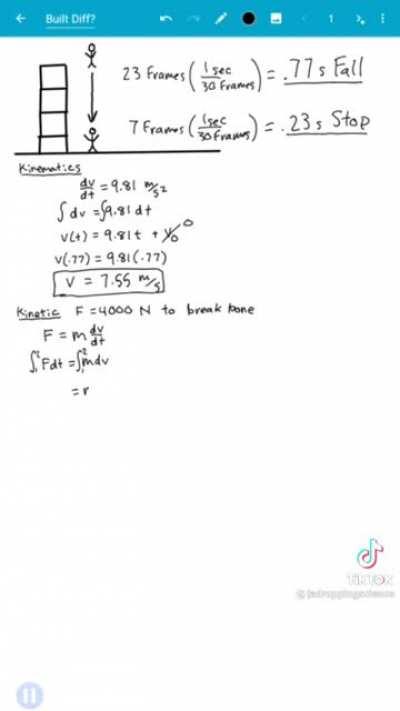 Built Diff?
1
23 Frames (1 sec / 30 Frames) = .77 s Fall
7 Frames (1 sec / 30 Frames) = .23 s Stop
Kinematics
dv/dt = 9.81 m/s²
∫ dv = ∫ 9.81 dt
v(t) = 9.81 t + V₀ 0
v(.77) = 9.81 (.77)
V = 7.55 m/s
Kinetic F = 4000 N to break bone
F = m dv/dt
∫₁² F dt = ∫₁² m dv
= r
TikTok